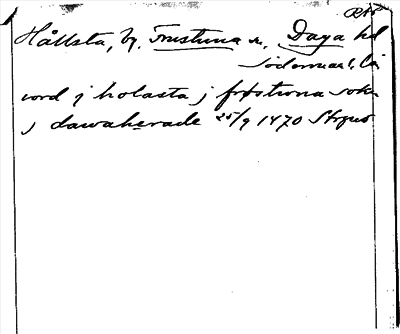 RAp
Hållsta, by, Frustuna sn, Daga hd
Södermanl. Län
iord j holasta j frøstuna sokn
j dawahærade 25/9 1470 Strgns